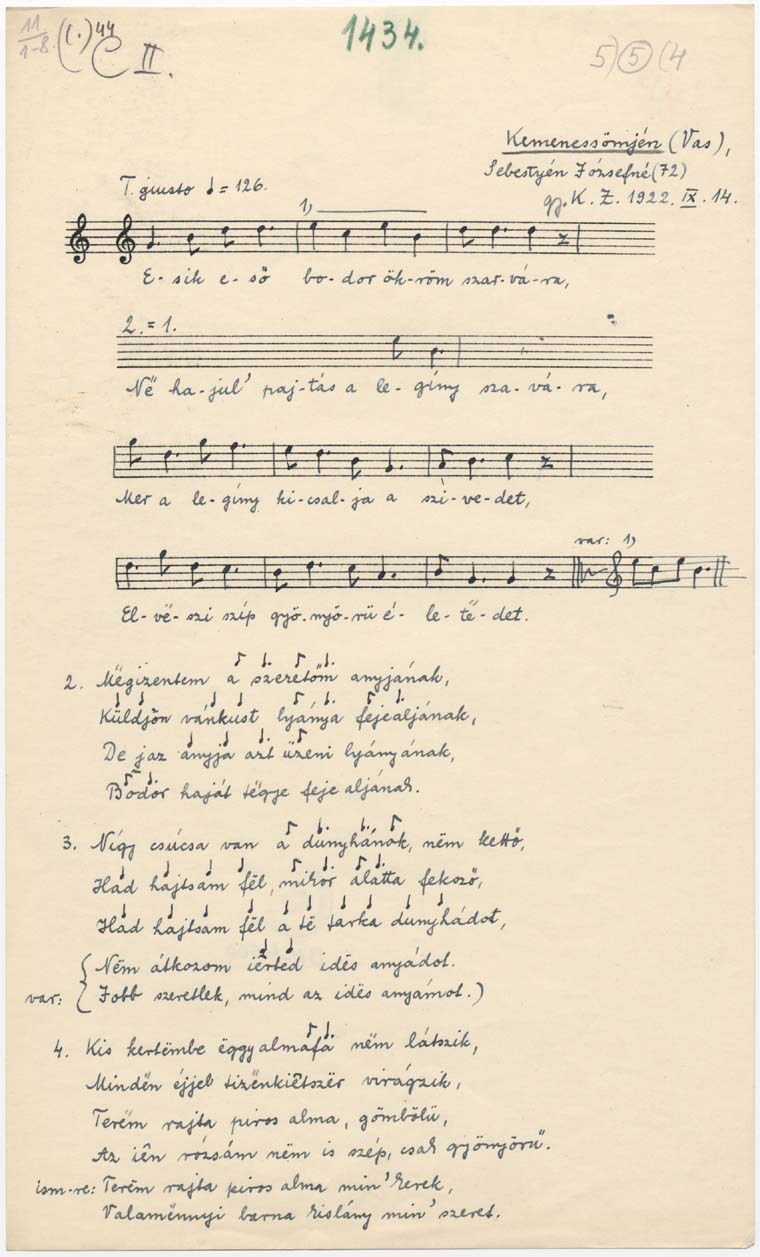 11/1-8. (C.) 44 C II.
1434.
5) 5 (4
Kemenessömjén (Vas),
Sebestyén Józsefné (72)
gy. K. Z. 1922. IX. 14.
T. giusto ♩ = 126.
1)
E- sik e- ső bo- dor ök-röm szar-vá-ra,
2. = 1.
Në ha-jul' paj-tás a le- gíny sza- vá- ra,
Mer a le- gíny ki-csal-ja a szi-ve-det,
var: 1)
El- vë- szi szíp gyö-nyö-rü é- le- të- det.
2. Mëgizentem a szeretőm anyjának,
Küldjön vánkust lyánya fejealjának,
De jaz anyja azt üzeni lyányának,
Bodor haját tëgye feje aljának.
3. Nígy csúcsa van a dunyhánok, nëm kettő,
Had hajtsam fël, mikor alatta feksző,
Had hajtsam fël a të tarka dunyhádot,
Nëm átkozom iêrted idës anyádot.
var: Jobb szeretlek, mind az idës anyámot.)
4. Kis kertëmbe ëggy almafa nëm látszik,
Mindën éjjel tizënkiêtszër virágzik,
Terëm rajta piros alma, gömbölü,
Az iên rózsám nëm is szép, csak gyönyörü.
ism-re: Terëm rajta piros alma min' kerek,
Valamënnyi barna kislány min' szeret.